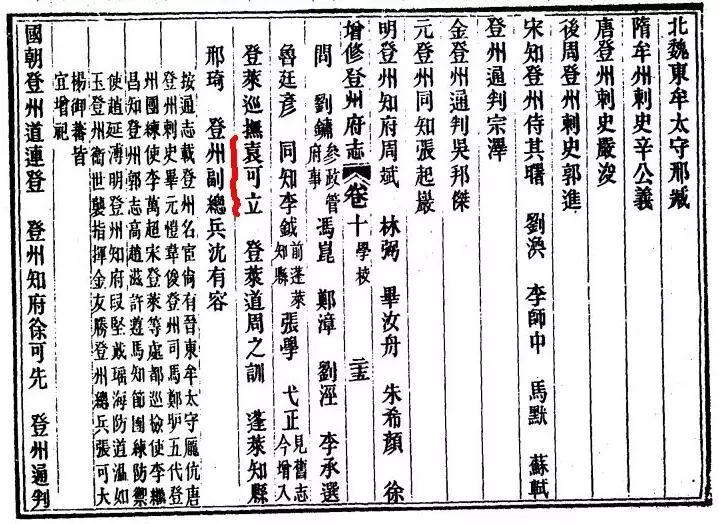 北魏東牟太守邢臧
隋牟州刺史辛公義
唐登州刺史嚴浚
後周登州刺史郭進
宋知登州侍其曙　劉渙　李師中　馬默　蘇軾
登州通判宗澤
金登州通判吳邦傑
元登州同知張起巖
明登州知府周斌　林弼　畢汝舟　朱希顏　徐
增修登州府志　卷十　學校　二五
問　劉鏞參政管府事　馮崑　鄭漳　劉涇　李承選
魯廷彥　同知李鉞前蓬萊知縣　張學　弋正見舊志今增入
登萊巡撫袁可立　登萊道周之訓　蓬萊知縣
邢琦　登州副總兵沈有容
按通志載登州名宦尚有晉東牟太守龐伉唐
登州刺史畢元愷韋俊登州司馬鄭馿五代登
州團練使李萬超宋登萊等處都巡檢使李繼
昌知登州郭志高趙滋許遵馬知節團練防禦
使趙延溥明登州知府段堅戴瑶海防道溫如
玉登州衛世襲指揮金友勝登州總兵張可大
楊御蕃皆
宜增祀
國朝登州道連登　登州知府徐可先　登州通判